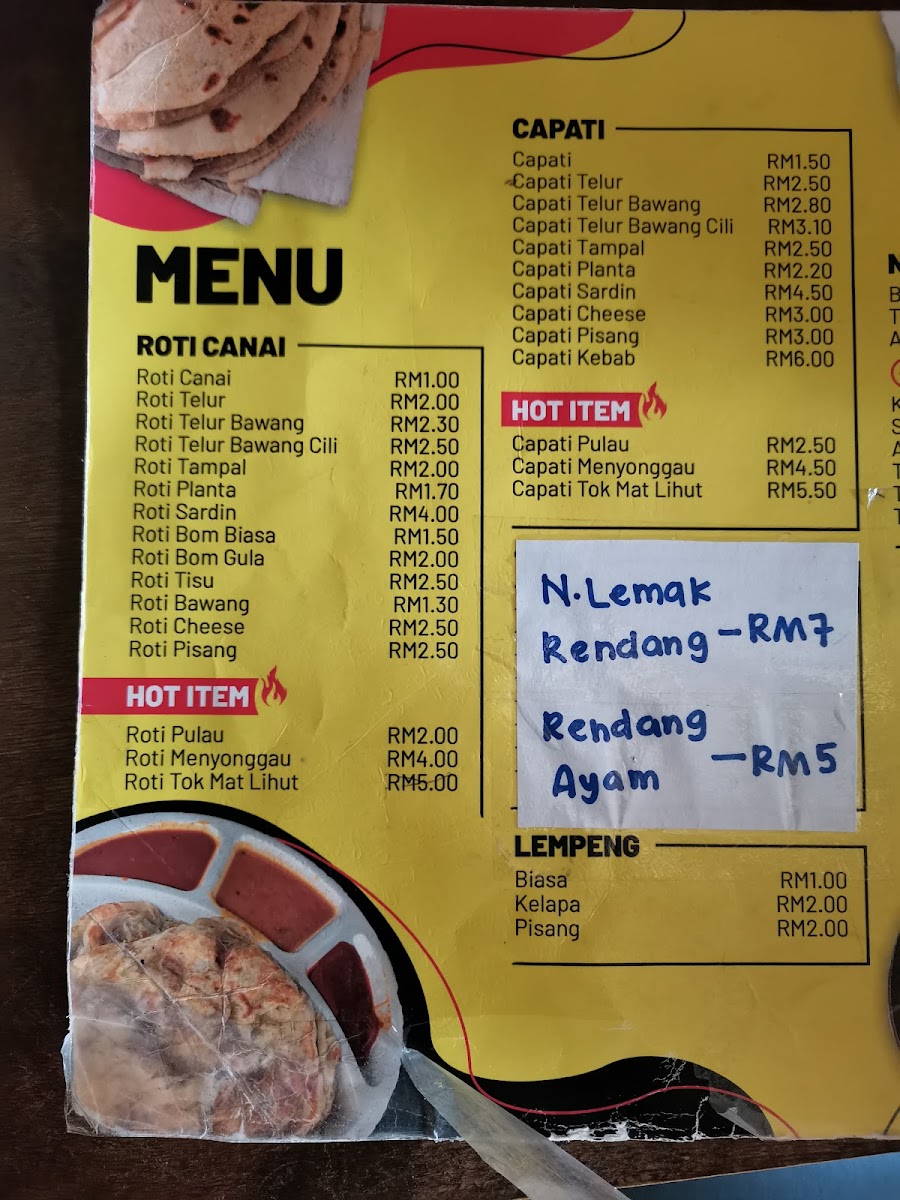 MENU
ROTI CANAI
Roti Canai RM1.00
Roti Telur RM2.00
Roti Telur Bawang RM2.30
Roti Telur Bawang Cili RM2.50
Roti Tampal RM2.00
Roti Planta RM1.70
Roti Sardin RM4.00
Roti Bom Biasa RM1.50
Roti Bom Gula RM2.00
Roti Tisu RM2.50
Roti Bawang RM1.30
Roti Cheese RM2.50
Roti Pisang RM2.50
HOT ITEM
Roti Pulau RM2.00
Roti Menyonggau RM4.00
Roti Tok Mat Lihut RM5.00
CAPATI
Capati RM1.50
Capati Telur RM2.50
Capati Telur Bawang RM2.80
Capati Telur Bawang Cili RM3.10
Capati Tampal RM2.50
Capati Planta RM2.20
Capati Sardin RM4.50
Capati Cheese RM3.00
Capati Pisang RM3.00
Capati Kebab RM6.00
HOT ITEM
Capati Pulau RM2.50
Capati Menyonggau RM4.50
Capati Tok Mat Lihut RM5.50
N.Lemak
Rendang - RM7
Rendang
Ayam - RM5
LEMPENG
Biasa RM1.00
Kelapa RM2.00
Pisang RM2.00